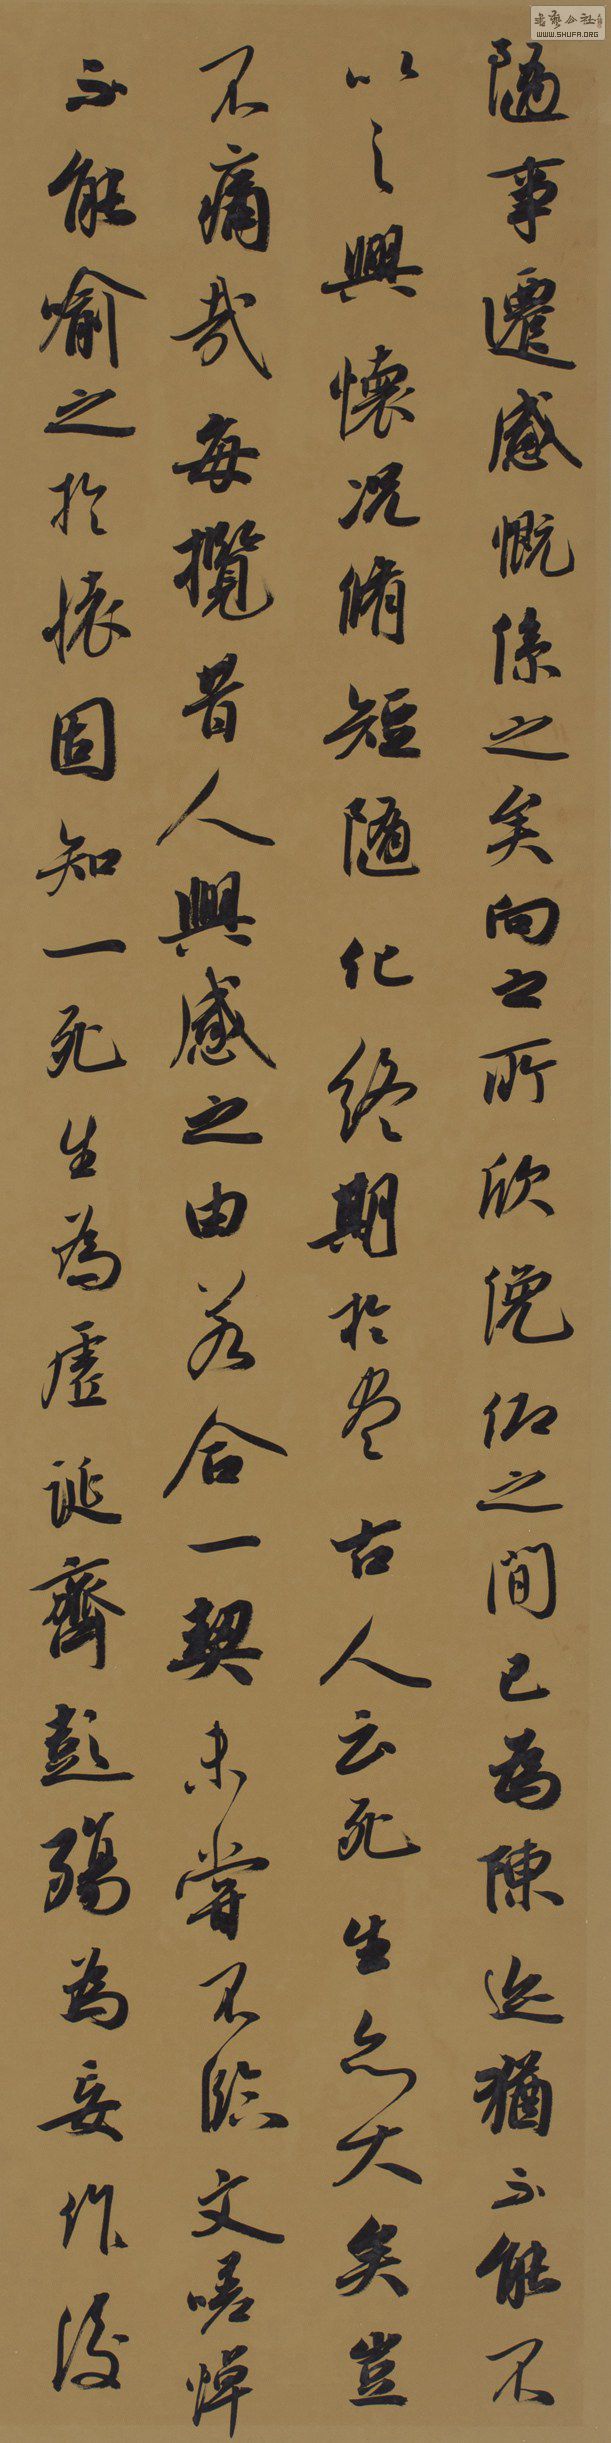 隨事遷感慨係之矣向之所欣俛仰之間已為陳迹猶不能不
以之興懷况脩短隨化終期於盡古人云死生亦大矣豈
不痛哉每攬昔人興感之由若合一契未嘗不臨文嗟悼
不能喻之於懷固知一死生為虛誕齊彭殤為妄作後
書藝公社
WWW.SHUFA.ORG